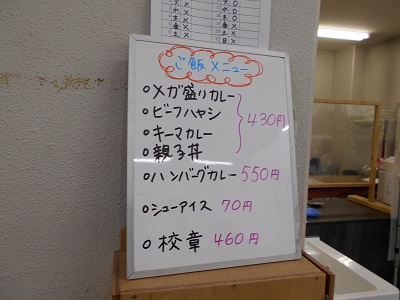 ご飯メニュー
○メガ盛りカレー
○ビーフハヤシ
○キーマカレー
○親子丼
430円
○ハンバーグカレー 550円
○シューアイス 70円
○校章 460円